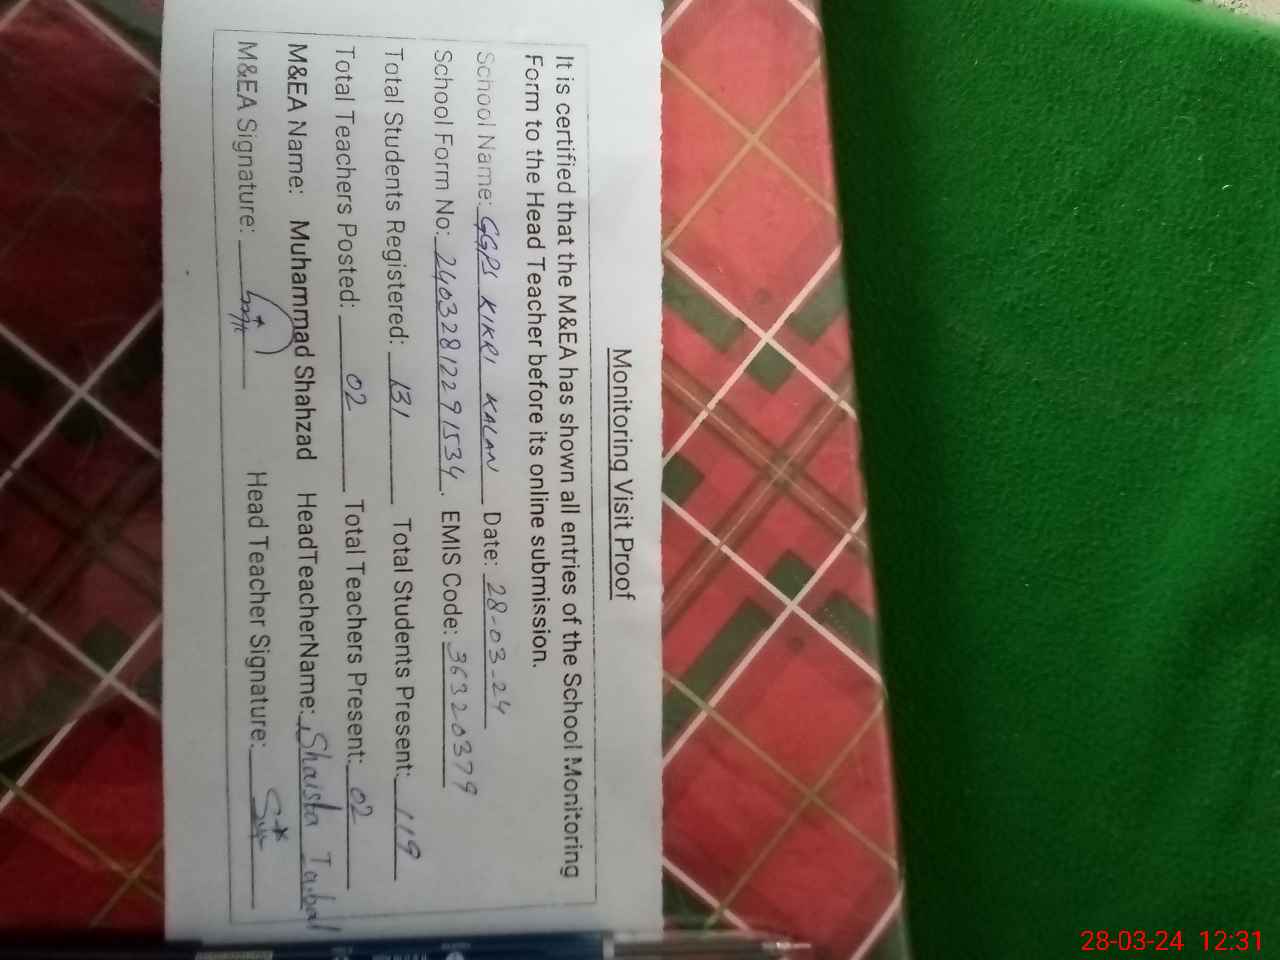 Monitoring Visit Proof
It is certified that the M&EA has shown all entries of the School Monitoring
Form to the Head Teacher before its online submission.
School Name: GGPS KIKRI KALAN Date: 28-03-24
School Form No: 240328122291534. EMIS Code: 36320379
Total Students Registered: 131 Total Students Present: 119
Total Teachers Posted: 02 Total Teachers Present: 02
M&EA Name: Muhammad Shahzad HeadTeacherName: Shaista
M&EA Signature: Head Teacher Signature:
28-03-24 12:31